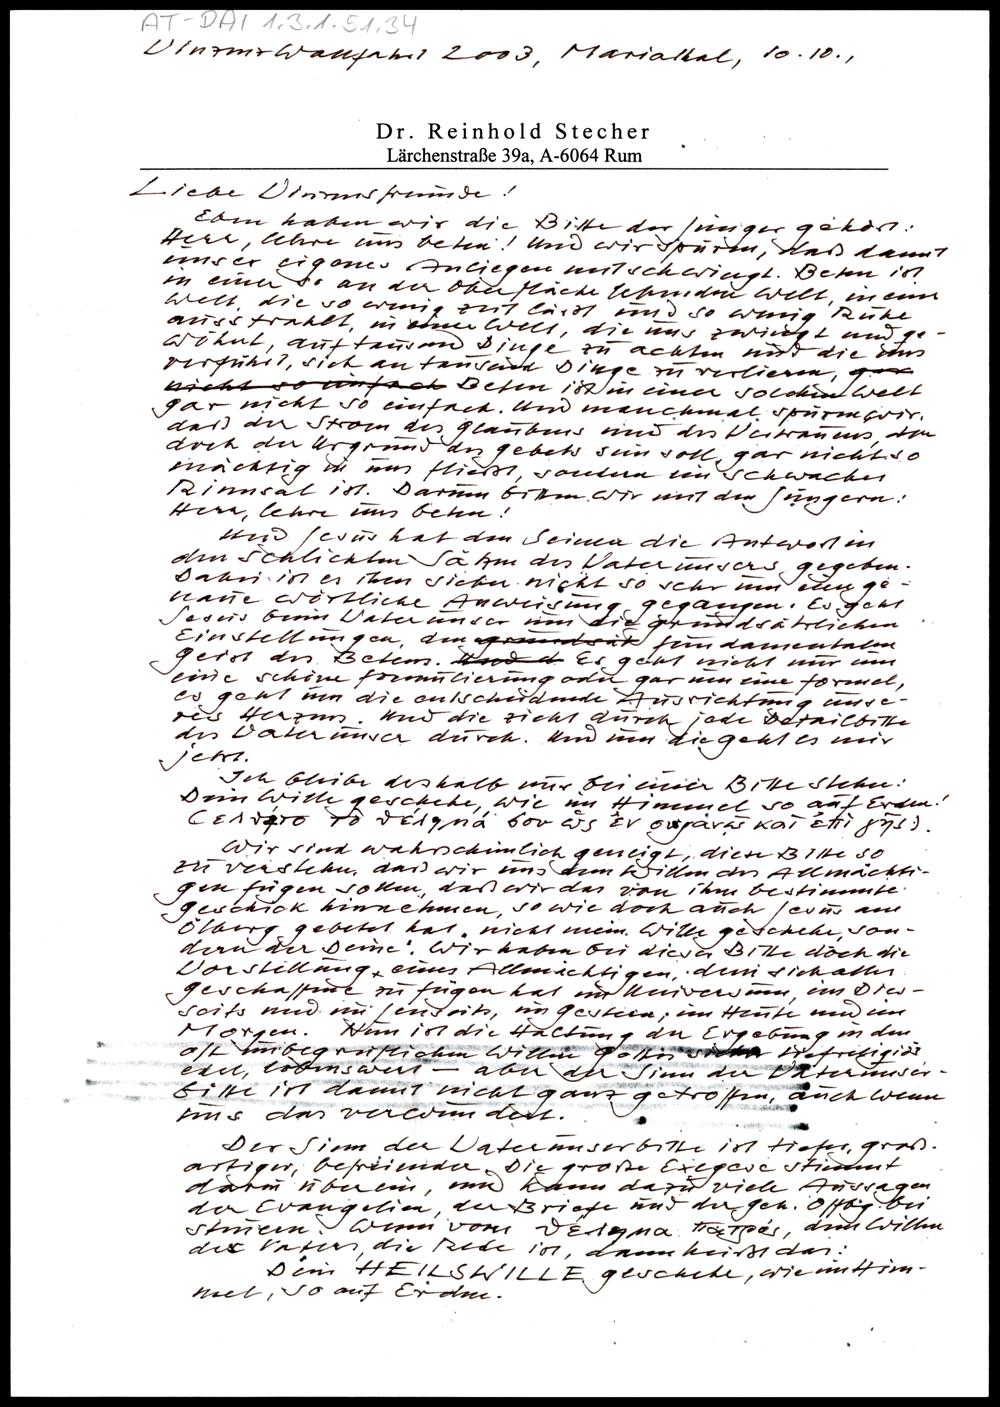 AT-DAI 1.3.1.51.34
Vinzenzwallfahrt 2003, Mariathal, 10.10.,
Dr. Reinhold Stecher
Lärchenstraße 39a, A-6064 Rum
Liebe Vinzenzfreunde!
Eben haben wir die Bitte der Jünger gehört:
Herr, lehre uns beten! Und wir spüren, daß damit
unser eigenes Anliegen mitschwingt. Beten ist
in einer so an der Oberfläche lebenden Welt, in einer
Welt, die so wenig Zeit läßt und so wenig Ruhe
ausstrahlt, in einer Welt, die uns zwingt und ge-
wöhnt, auf tausend Dinge zu achten und die uns
verführt, sich an tausend Dinge zu verlieren, gar
nicht so einfach Beten ist in einer solchen Welt
gar nicht so einfach. Und manchmal spüren wir,
daß der Strom des Glaubens und des Vertrauens, der
doch der Urgrund des Gebets sein soll, gar nicht so
mächtig in uns fließt, sondern ein schwaches
Rinnsal ist. Darum bitten wir mit den Jüngern:
Herr, lehre uns beten!
Und Jesus hat den Seinen die Antwort in
den schlichten Sätzen des Vaterunsers gegeben.
Dabei ist es ihm sicher nicht so sehr um eine ge-
naue wörtliche Anweisung gegangen. Es geht
Jesus beim Vaterunser um die grundsätzlichen
Einstellungen, den grundsät fundamentalen
Geist des Betens. Und d Es geht nicht nur um
eine schöne Formulierung oder gar um eine Formel,
es geht um die entscheidende Ausrichtung unse-
res Herzens. Und die zieht durch jede Detailbitte
des Vaterunser durch. Und um die geht es mir
jetzt.
Ich bleibe deshalb nur bei einer Bitte stehen:
Dein Wille geschehe, wie im Himmel so auf Erden!
τὸ θέλημά σου ὡς ἐν οὐρανῷ καὶ ἐπὶ γῆς).
Wir sind wahrscheinlich geneigt, diese Bitte so
zu verstehen, daß wir uns dem Willen des Allmächti-
gen fügen sollen, daß wir das von ihm bestimmte
Geschick hinnehmen, so wie doch auch Jesus am
Ölberg gebetet hat „nicht mein Wille geschehe, son-
dern der Deine'. Wir haben bei dieser Bitte doch die
Vorstellung eines Allmächtigen, dem sich alles
Geschaffene zu fügen hat im Universum, im Dies-
seits und im Jenseits, im Gestern, im Heute und im
Morgen. Nun ist die Haltung der Ergebung in den
oft unbegreiflichen Willen Gottes sicher tiefreligiös
edel, lobenswert - aber der Sinn der Vaterunser-
bitte ist damit nicht ganz getroffen, auch wenn
uns das verwundert.
Der Sinn der Vaterunserbitte ist tiefer, groß-
artiger, befreiender. Die große Exegese stimmt
darin überein, und kann dazu viele Aussagen
der Evangelien, der Briefe und der geh. Offbg. bei
steuern. Wenn vom θέλημα πατρός, dem Willen
des Vaters, die Rede ist, dann heißt das:
Dein HEILSWILLE geschehe, wie im Him-
mel, so auf Erden.